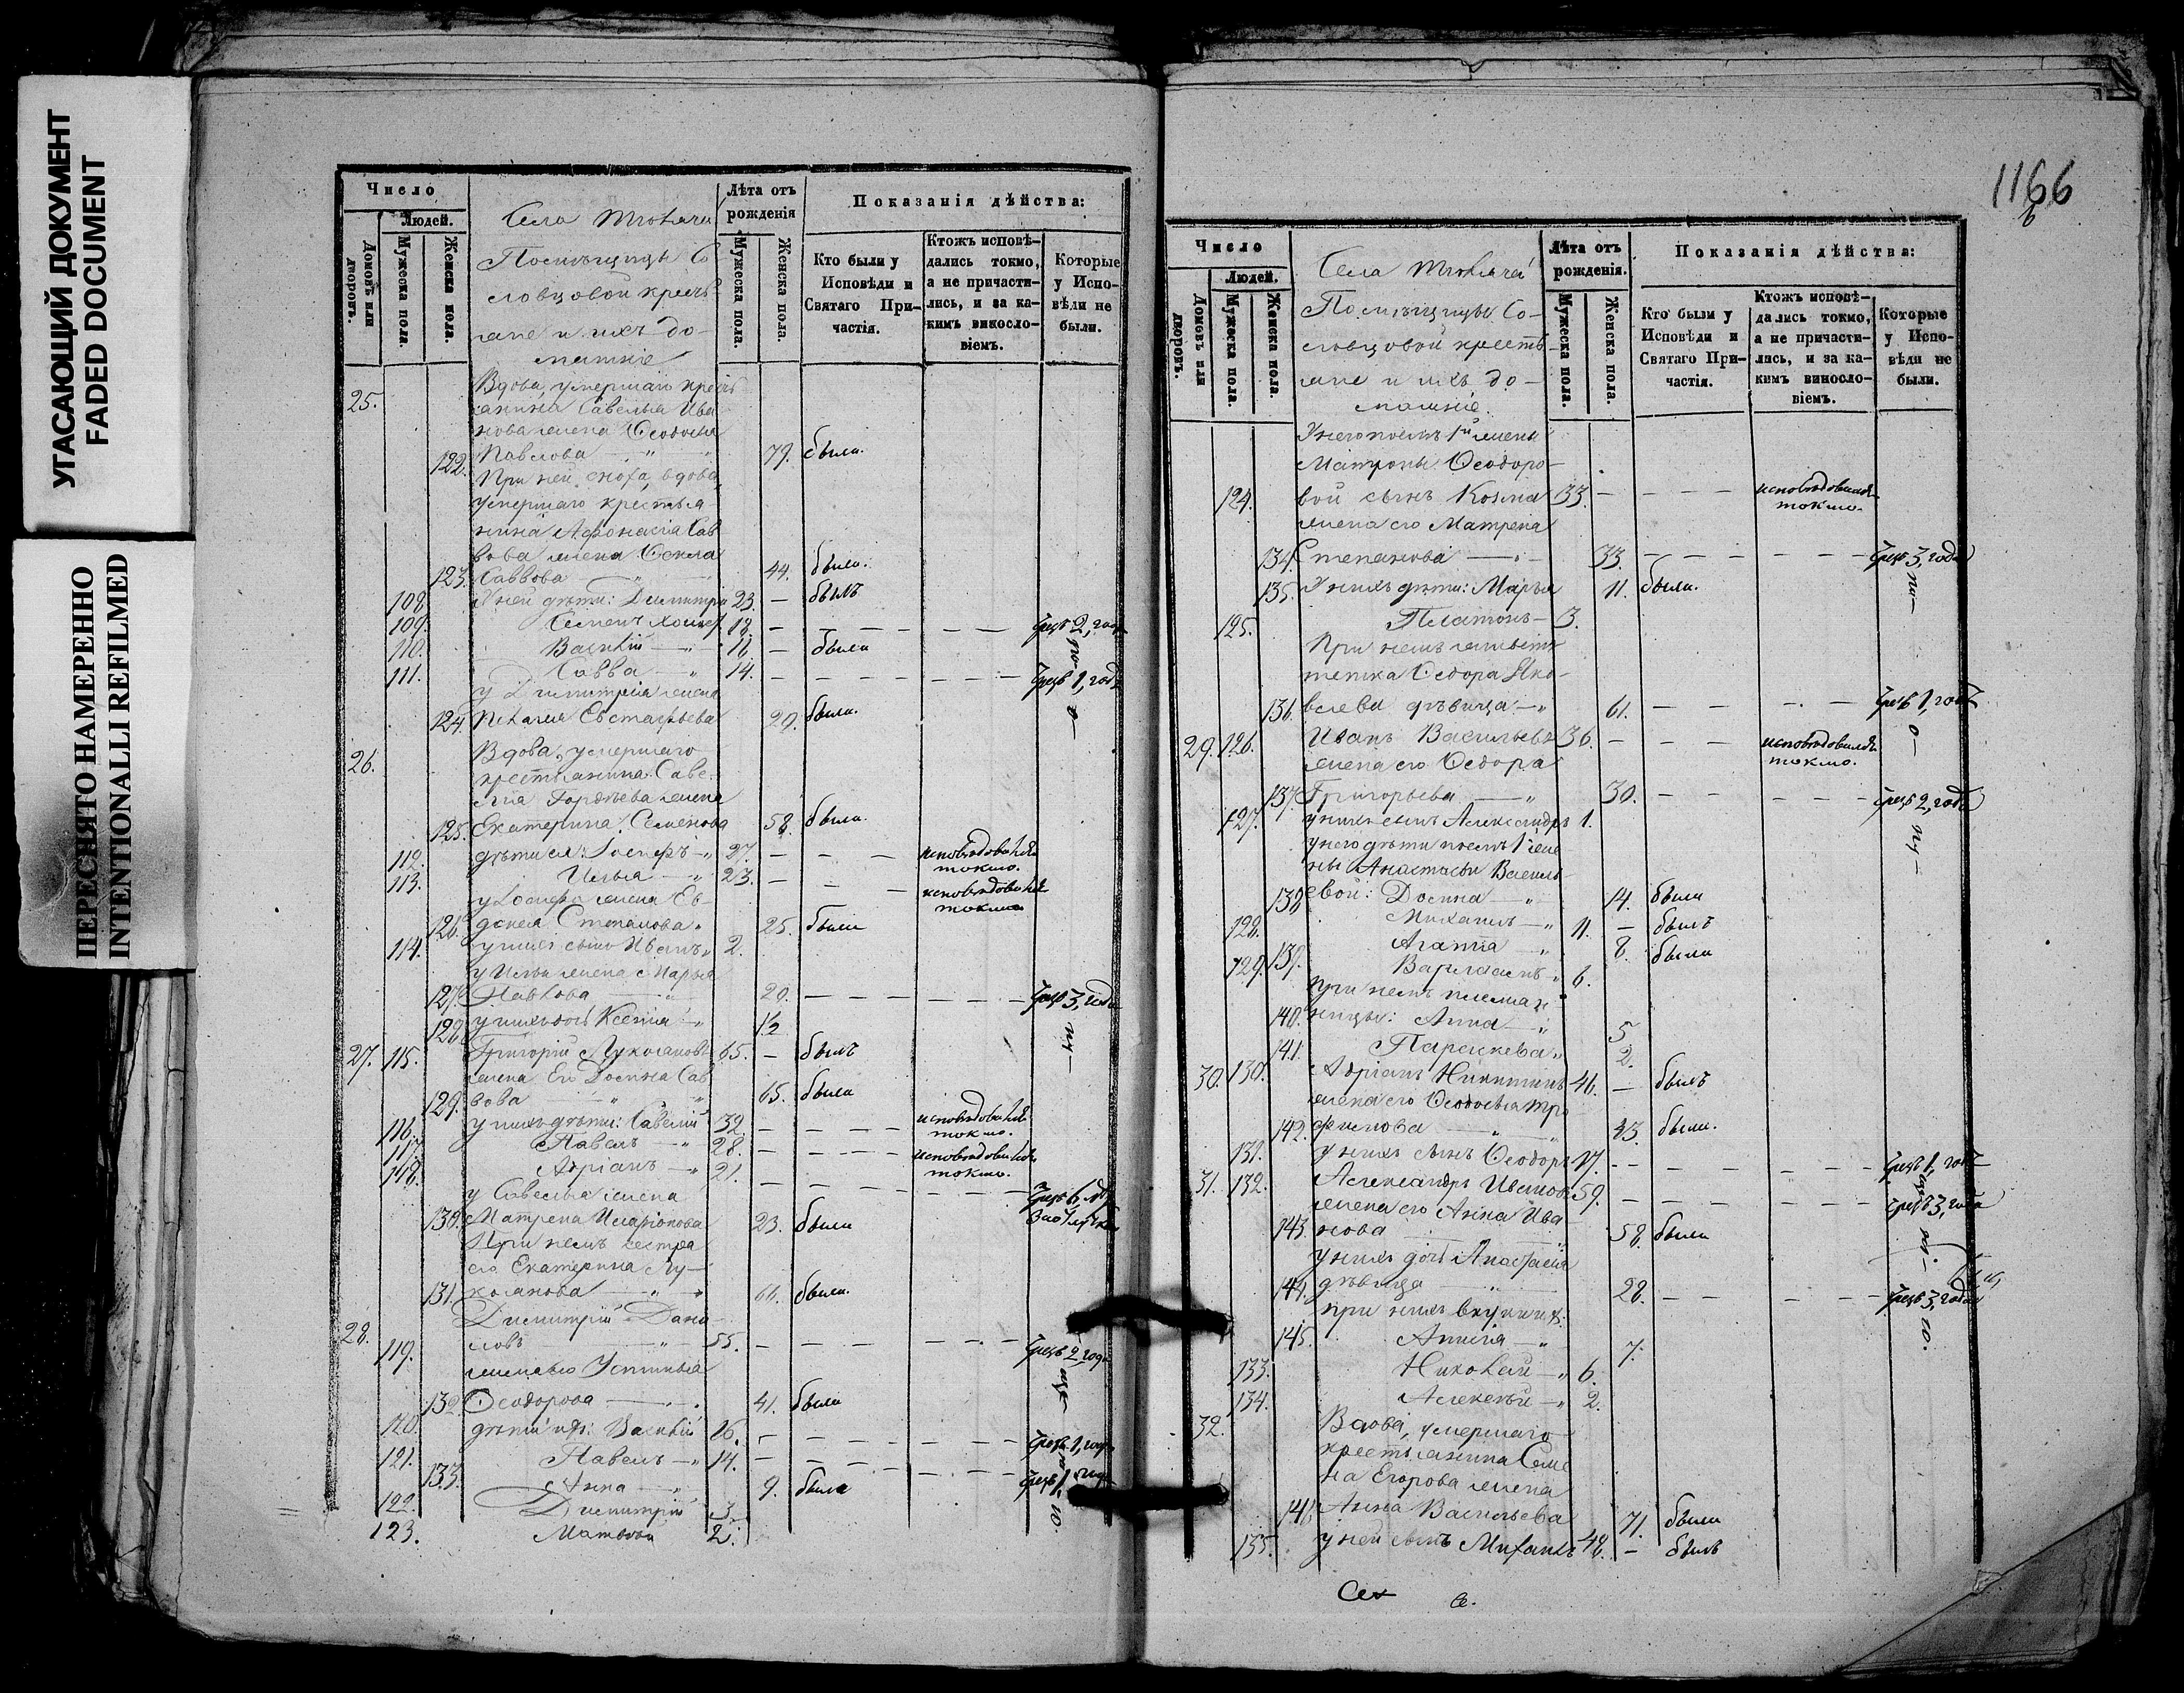 УГАСАЮЩИЙ ДОКУМЕНТ
FADED DOCUMENT
ПЕРЕСНЯТО НАМЕРЕННО
INTENTIONALLI REFILMED
Число
Людей.
Домовъ или дворовъ.
Мужеска пола.
Женска пола.
Села
Помѣщицы Со
ловцовой кресть
яне и ихъ до-
машніе
Лѣта отъ рожденія
Мужеска пола.
Женска пола.
Показанія дѣйства:
Кто были у Исповѣди и Святаго Причастія.
Ктожъ исповѣ-
дались токмо,
а не причасти-
лись, и за ка-
кимъ виносло-
віемъ.
Которые
у Испо-
вѣди не
были.
25.
Вдова, умершаго кресть
янина Савелья Ива
нова жена Ѳеодосья
122. Павлова 79. была.
При ней сноха, вдова,
умершаго крестья
нина Афонасія Сав
вова жена Ѳекла
123. Саввова 44. была.
108. У ней дѣти: Димитрій 23. — былъ
109. Семенъ холост 18. — чрезъ 2, года
110. Василій 16 — были
111. Савва 14. — чрезъ 1, годъ
у Димитрія жена
124. Пелагея Евстафьева 20. была.
26.
Вдова, умершаго
крестьянина Саве-
лія Гордѣева жена
125. Екатерина Семенова 58. была.
112. дѣти ея: Іосифъ 27. — исповѣдовался
токмо.
113. Илья 23. — исповѣдовался
токмо
у Іосифа жена Ев-
126. докея Степанова 25. была
114. у нихъ сынъ Иванъ 2.
у Ильи жена Марья
127. Павлова 20. — чрезъ 3, года
128. у нихъ дочь Ксенія ½
27. 115. Григорій Лукояновъ 65. — былъ
жена Его Домна Сав
129. вова 65. была
116. у нихъ дѣти: Савелій 32. — исповѣдовался
токмо.
117. Павелъ 28. — исповѣдовался
токмо.
118. Адріанъ 21. — чрезъ 6,
у Савелья жена
130. Матрена Иларіонова 23. была
При немъ сестра
его Екатерина Лу-
131. коянова 61. была.
28.
Димитрій Дани
119. ловъ 55. — чрезъ 2, года
жена его Устинья
132. Ѳеодорова 41. была
120. дѣти ихъ: Василій 16. — чрезъ 1, годъ
121. Павелъ 14. — чрезъ 1, годъ
133. Анна 9. была
122. Димитрій 3.
123. Матвѣй 2.
1166
Число
Людей.
Домовъ или дворовъ.
Мужеска пола.
Женска пола.
Села
Помѣщицы Со-
ловцовой кресть
яне и ихъ до-
машніе.
Лѣта отъ рожденія.
Мужеска пола.
Женска пола.
Показанія дѣйства:
Кто были у
Исповѣди и
Святаго При-
частія.
Ктожъ исповѣ-
дались токмо,
а не причасти-
лись, и за ка-
кимъ виносло-
віемъ.
Которые
у Испо-
вѣди не
были.
У него 1й жены
Матроны Ѳеодоро-
124. вой сынъ Козма 33. — исповѣдовался
токмо.
жена его Матрена
134. Степанова 33. — чрезъ 3, года
135. У нихъ дѣти: Марья 11. была.
125. Платонъ 3.
При немъ живетъ
тетка Ѳедора Яко-
136. влева дѣвица 61. — чрезъ 1, годъ
29. 126. Иванъ Васильевъ 36. — исповѣдовался
токмо.
жена его Ѳедора
137. Григорьева 30. — чрезъ 2, года
127. у нихъ сынъ Александръ 1.
у него дѣти 1 же-
ны Анастасьи Василь-
138. евой: Домна 14. была
128. Михаилъ 11. — былъ
139. Агапія 8. была
129. Варлаамъ 6.
При немъ племян
140. ницы: Анна 5
141. Параскева 2.
30. 130. Адріанъ Никитинъ 46. — былъ
жена его Ѳеодосья Тро
142. фимова 43. была.
131. У нихъ сынъ Ѳеодоръ 17. — чрезъ 1, годъ
31. 132. Александръ Ивановъ 59. — чрезъ 3, года
жена его Анна Ива
143. нова 58. была
у нихъ дочь Анастасія
144. дѣвица 28. — чрезъ 3, года
при нихъ внучки:
145. Анисія 7.
133. Николай 6.
134. Алексѣй 2.
32.
Вдова, умершаго
крестьянина Семе
на Егорова жена
146 Анна Васильева 71. была
135. у ней сынъ Михаилъ 48. — былъ